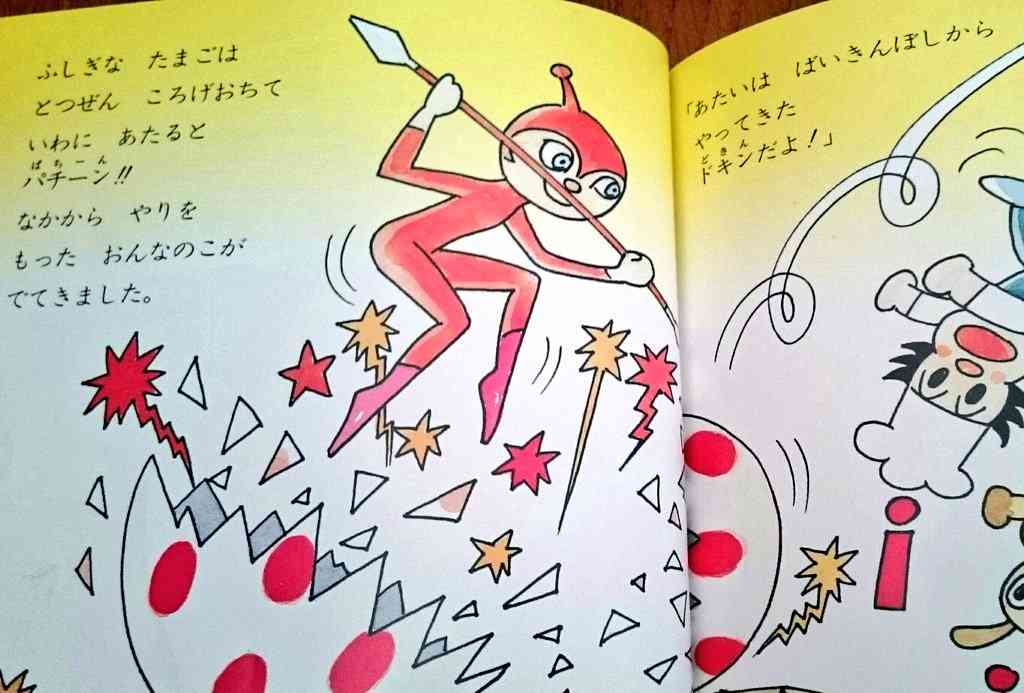 ふしぎな たまごは
とつぜん ころげおちて
いわに あたると
ばちーん
パチーン!!
なかから やりを
もった おんなのこが
でてきました。
「あたいは ばいきんぼしから
やってきた
どきん
ドキンだよ!」